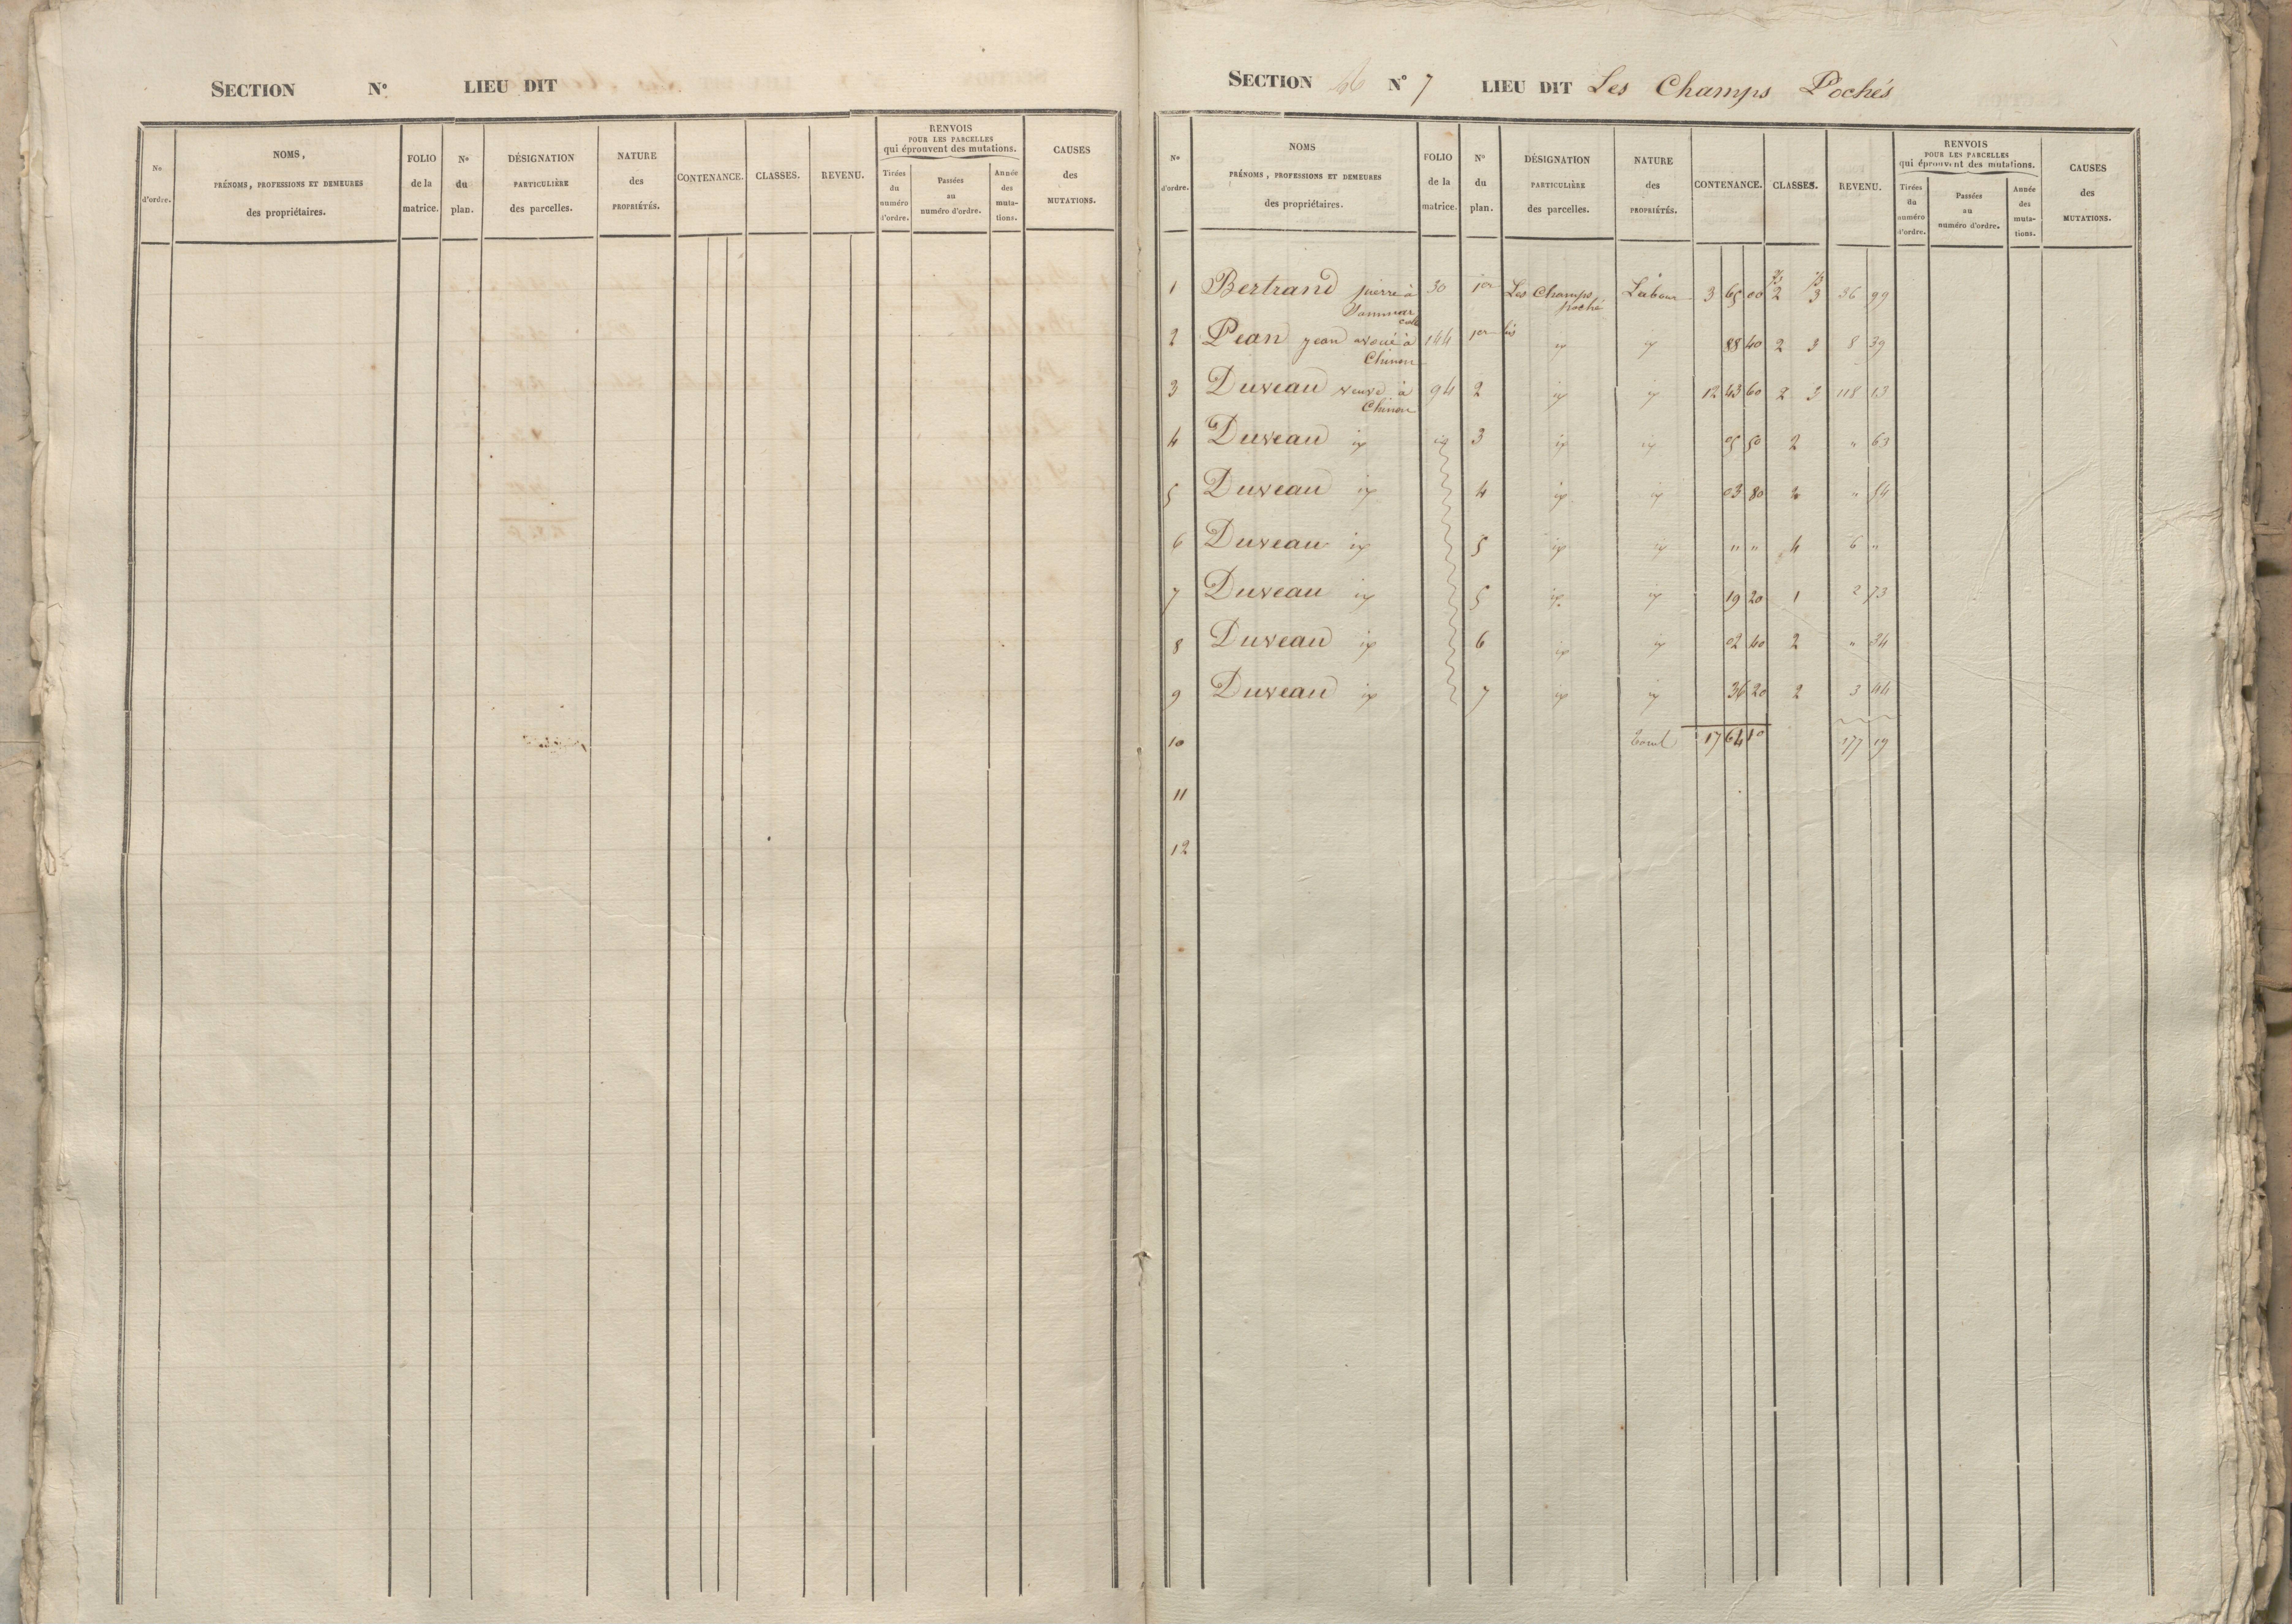 SECTION N° LIEU DIT
No d'ordre.
NOMS,
PRÉNOMS, PROFESSIONS ET DEMEURES
des propriétaires.
FOLIO
de la
matrice.
No
du
plan.
DÉSIGNATION
PARTICULIÈRE
des parcelles.
NATURE
des
PROPRIÉTÉS.
CONTENANCE.
CLASSES.
REVENU.
RENVOIS
POUR LES PARCELLES
qui éprouvent des mutations.
Tirées
du
numéro
d'ordre.
Passées
au
numéro d'ordre.
Année
des
muta-
tions.
CAUSES
des
MUTATIONS.
SECTION N° 7 LIEU DIT Les Champs Pochés
No
d'ordre.
NOMS
PRÉNOMS, PROFESSIONS ET DEMEURES
des propriétaires.
FOLIO
de la
matrice.
N°
du
plan.
DÉSIGNATION
PARTICULIÈRE
des parcelles.
NATURE
des
PROPRIÉTÉS.
CONTENANCE.
CLASSES.
REVENU.
RENVOIS
POUR LES PARCELLES
qui éprouvent des mutations.
Tirées
du
numéro
d'ordre.
Passées
au
numéro d'ordre.
Année
des
muta-
tions.
CAUSES
des
MUTATIONS.
1 Bertrand pierre à 30 1er Les Champs Labour 3 65 00 2 3 36 99
poché
2 Pean jean avoué à 144 1er bis id id 88 40 2 3 8 39
Chinon
3 Duveau veuve à 94 2 id id 12 43 60 2 3 118 13
Chinon
4 Duveau id id 3 id id 05 50 2 " 63
5 Duveau id 4 id id 03 80 2 " 54
6 Duveau id 5 id id " " 4 6 "
7 Duveau id 5 id id 19 20 1 2 73
8 Duveau id 6 id id 02 40 2 " 34
9 Duveau id 7 id id 36 20 2 3 44
10 17 64 10 177 19
11
12